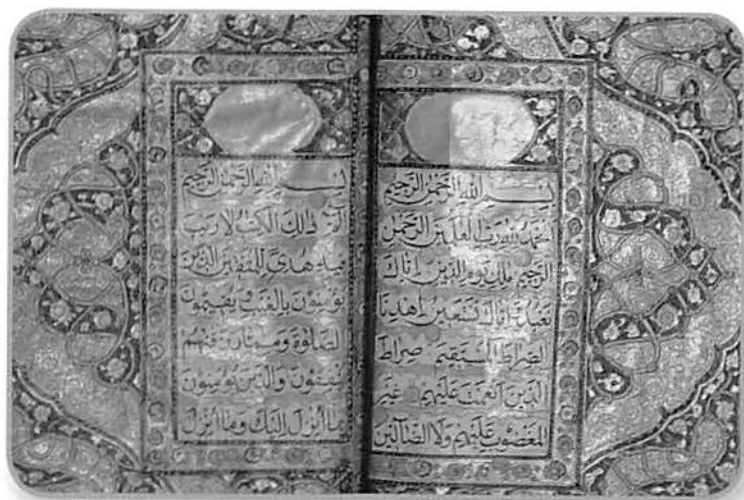 بسم الله الرحمن الرحيم
الحمد لله رب العلمين الرحمن
الرحيم ملك يوم الدين اياك
نعبد واياك نستعين اهدنا
الصراط المستقيم صراط
الذين انعمت عليهم غير
المغضوب عليهم ولا الضالين
بسم الله الرحمن الرحيم
الم ذلك الكتب لا ريب
فيه هدى للمتقين الذين
يؤمنون بالغيب ويقيمون
الصلوة ومما رزقنهم
ينفقون والذين يؤمنون
بما أنزل اليك وما أنزل